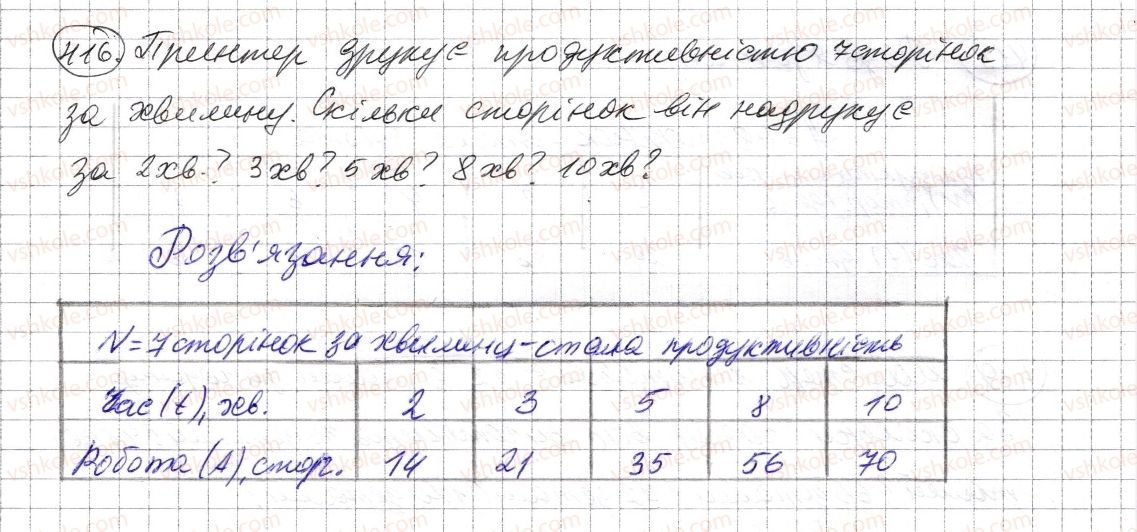 416. Принтер друкує продуктивністю 7 сторінок
за хвилину. Скільки сторінок він надрукує
за 2 хв.? 3 хв? 5 хв? 8 хв? 10 хв?
Розв'язання:
N = 7 сторінок за хвилину - стала продуктивність
Час (t), хв. 2 3 5 8 10
Робота (A), стор. 14 21 35 56 70